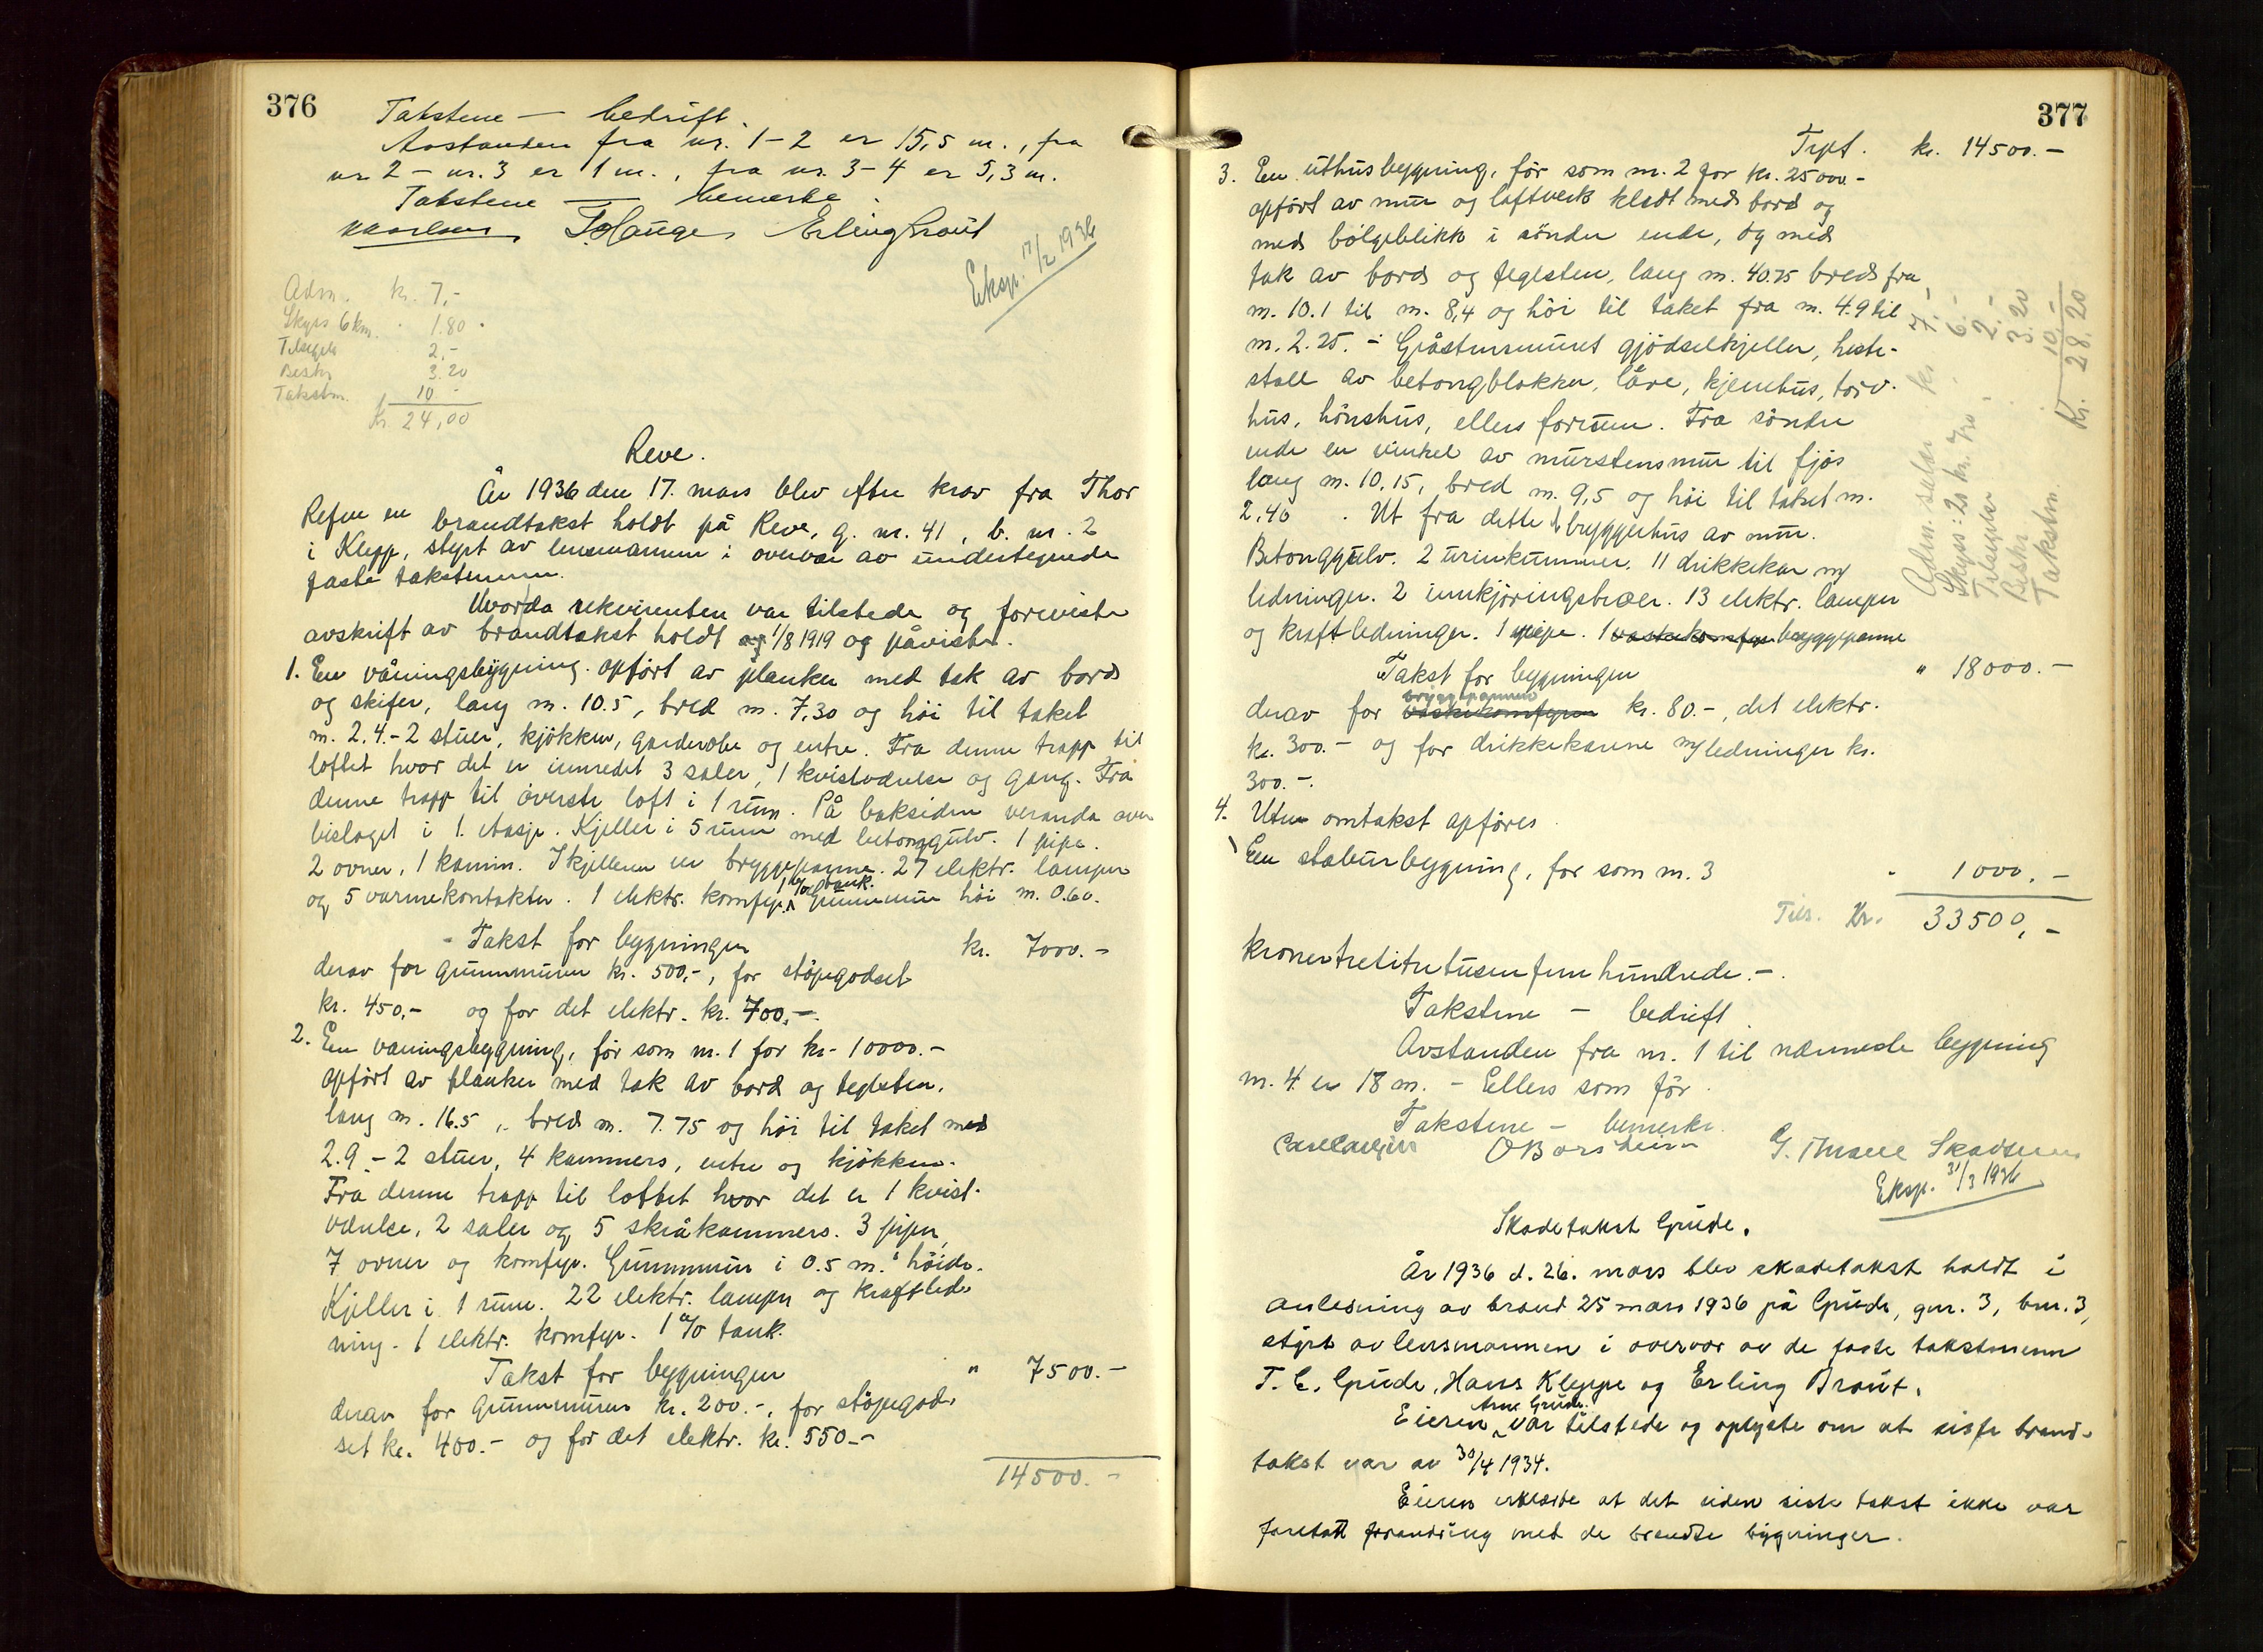 376
Takstene — bedrift.
Avstanden fra nr. 1-2 er 15,5 m., fra
nr 2 - nr. 3 er 1 m., fra nr. 3-4 er 5,3 m.
Takstene — bemerke.
T. Hauge Erling Braut
Eksp. 17/2 1936
Adm. kr. 7,-
Skyss 6 km. " 1.80
Tilsegels 2,-
Beskr 3.20
Takstm. 10 -
Kr. 24,00
Reve.
År 1936 den 17. mars blev efter krav fra Thor
Refne en brandtakst holdt på Reve, g. nr. 41, b. nr. 2
i Klepp, styrt av lensmannen i overvær av undertegnede
faste takstmenn.
Hvorda rekvirenten var tilstede og foreviste
avskrift av brandtakst holdt 1/8 1919 og påviste.
1. En våningsbygning opført av planker med tak av bord
og skifer, lang m. 10.5, bred m. 7,30 og høi til taket
m. 2.4. - 2 stuer, kjøkken, garderobe og entre. Fra denne trapp til
loftet hvor det er innredet 3 saler, 1 kvistværelse og gang. Fra
denne trapp til øverste loft i 1 rum. På baksiden veranda over
bislaget i 1. etasje. Kjeller i 5 rum med betonggulv. 1 pipe.
2 ovner, 1 kamin. I kjelleren en bryggepanne. 27 elektr. lamper
og 5 varmekontakter. 1 elektr. komfyr. 1 % tank. Grunnmur høi m. 0.60.
- Takst for bygningen kr. 7000.-
derav for grunnmuren kr. 500,-, for støpegodset
kr. 450,- og for det elektr. kr. 700,-.
2. En våningsbygning, før som nr. 1 for kr. 10000.-
opført av planker med tak av bord og teglsten,
lang m. 16.5, bred m. 7.75 og høi til taket med
2.9. - 2 stuer, 4 kammers, entre og kjøkken.
Fra denne trapp til loftet hvor det er 1 kvist-
værelse, 2 saler og 5 skråkammers. 3 piper,
7 ovner og komfyr. Grunnmur i 0.5 m.s høide.
Kjeller i 1 rum. 22 elektr. lamper og kraftled-
ning. 1 elektr. komfyr. 1 % tank.
Takst for bygningen " 7500.-
derav for grunnmuren kr. 200.-, for støpegod-
set kr. 400.- og for det elektr. kr. 550.-
14500.-
377
Trpt. kr. 14500.-
3. En uthusbygning, før som nr. 2 for kr. 25000.-
opført av mur og loftverk klædt med bord og
med bølgeblikk i søndre ende, og med
tak av bord og teglsten, lang m. 40.75 bred fra
m. 10.1 til m. 8,4 og høi til taket fra m. 4.9 til
m. 2.25. - Gråstensmuret gjødselkjeller, heste-
stall av betongblokker, låve, kjerrehus, torv-
hus, hønshus, ellers forrum. Fra søndre
ende en vinkel av murstensmur til fjøs
lang m. 10,15, bred m. 9,5 og høi til taket m.
2,40. Ut fra dette bryggerhus av mur.
Betonggulv. 2 urinkummer. 11 drikkekar m/
ledninger. 2 innkjøringsbroer. 13 elektr. lamper
og kraftledninger. 1 pipe. 1 vaskekomfyr bryggepanne
Takst for bygningen " 18000.-
bryggepannen
derav for vaskekomfyren kr. 80.-, det elektr.
kr. 300.- og for drikkekarene m/ledninger kr.
300.-.
4. Uten omtakst opføres
En stabursbygning, før som nr. 3 " 1000.-
Tils. Kr. 33500,-
kronertretitretusenfemhundrede.-.
Takstene - bedrift.
Avstanden fra nr. 1 til nærmeste bygning
nr. 4 er 18 m. - Ellers som før.
Takstene - bemerke.
O Borsheim G. Thrane Skadsem
Eksp. 31/3 1936
Adm. kr. 7.-
Skyss: 20 km. 6.-
Tilsegeler 2.-
Beskr. 3.20
Takstm. 10.-
Kr. 28.20
Skadetakst Grude.
År 1936 d. 26. mars blev skadetakst holdt i
anledning av brand 25 mars 1936 på Grude, gnr. 3, bnr. 3,
styrt av lensmannen i overvær av de faste takstmenn
T. E. Grude, Hans Kleppe og Erling Braut.
Arne Grude
Eieren var tilstede og oplyste om at siste brand-
takst var av 30/4 1934.
Eieren erklærte at det siden siste takst ikke var
foretatt forandring med de brendte bygninger.